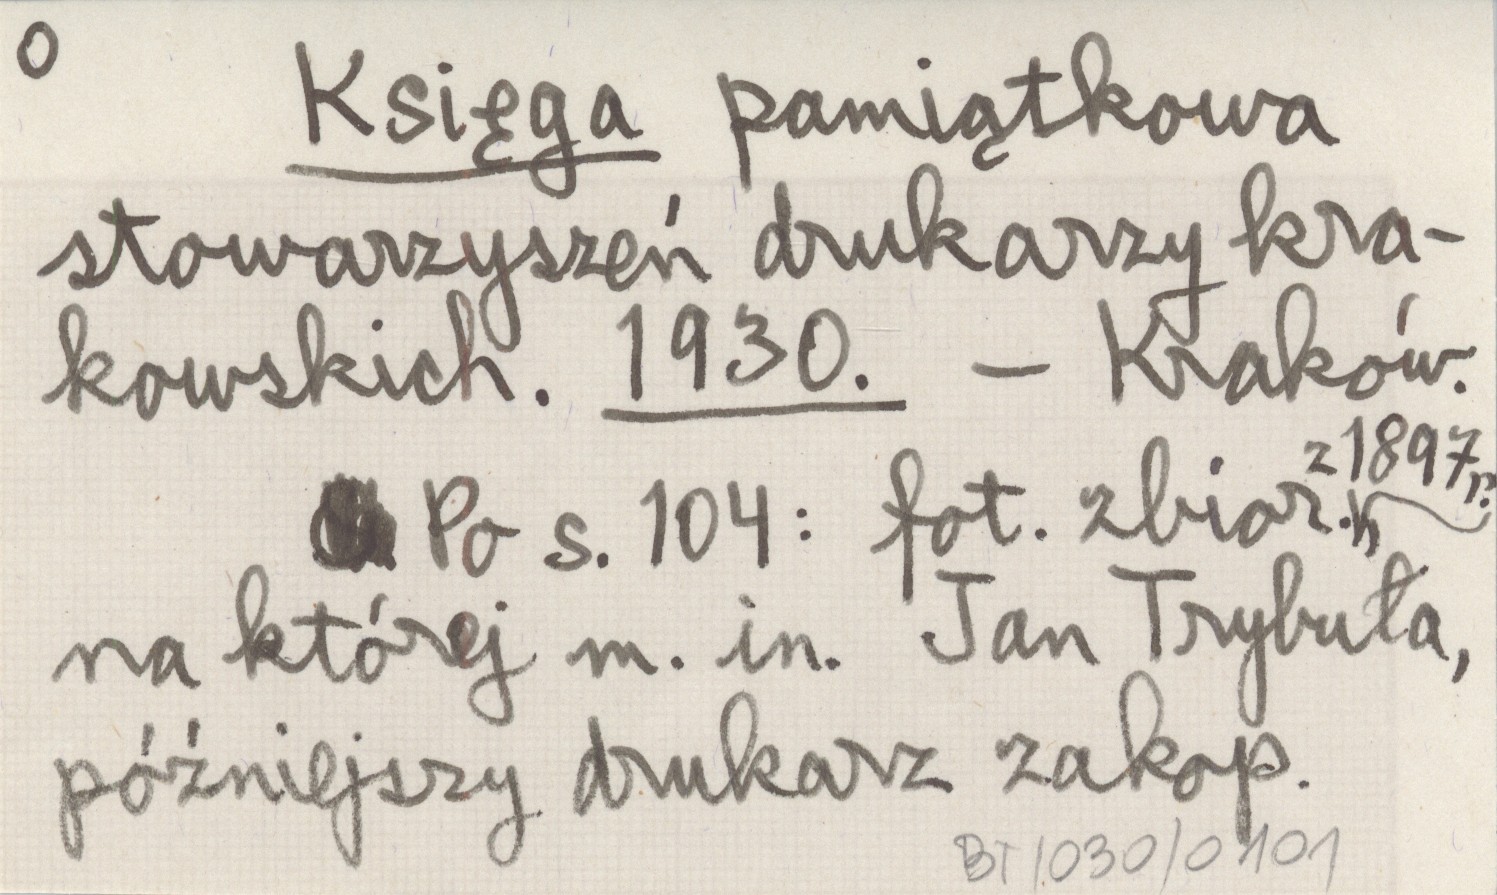 0
Księga pamiątkowa
stowarzyszeń drukarzy kra-
kowskich. 1930. – Kraków.
z 1897 r.
Po s. 104: fot. zbior.
na której m. in. Jan Trybuła,
późniejszy drukarz zakop.
BT/030/0101